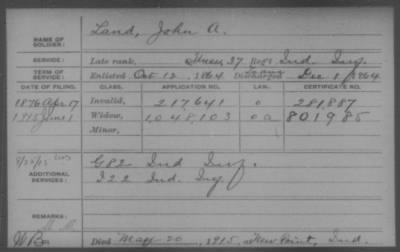 NAME OF SOLDIER: Land, John A.
SERVICE: Late rank, 37 Regt. Ind. Inf.
TERM OF SERVICE: Enlisted Oct 12, 1864 Discharged Dec 1, 1864
DATE OF FILING. CLASS. APPLICATION NO. CERTIFICATE NO.
1876 Apr 17 Invalid, 217641 281,887
1915 June 1 Widow, 1,048,103 801985
Minor,
ADDITIONAL SERVICES: G82 Ind Inf.
I22 Ind. Inf
REMARKS:
Died May 20, 1915, at New Point, Ind.